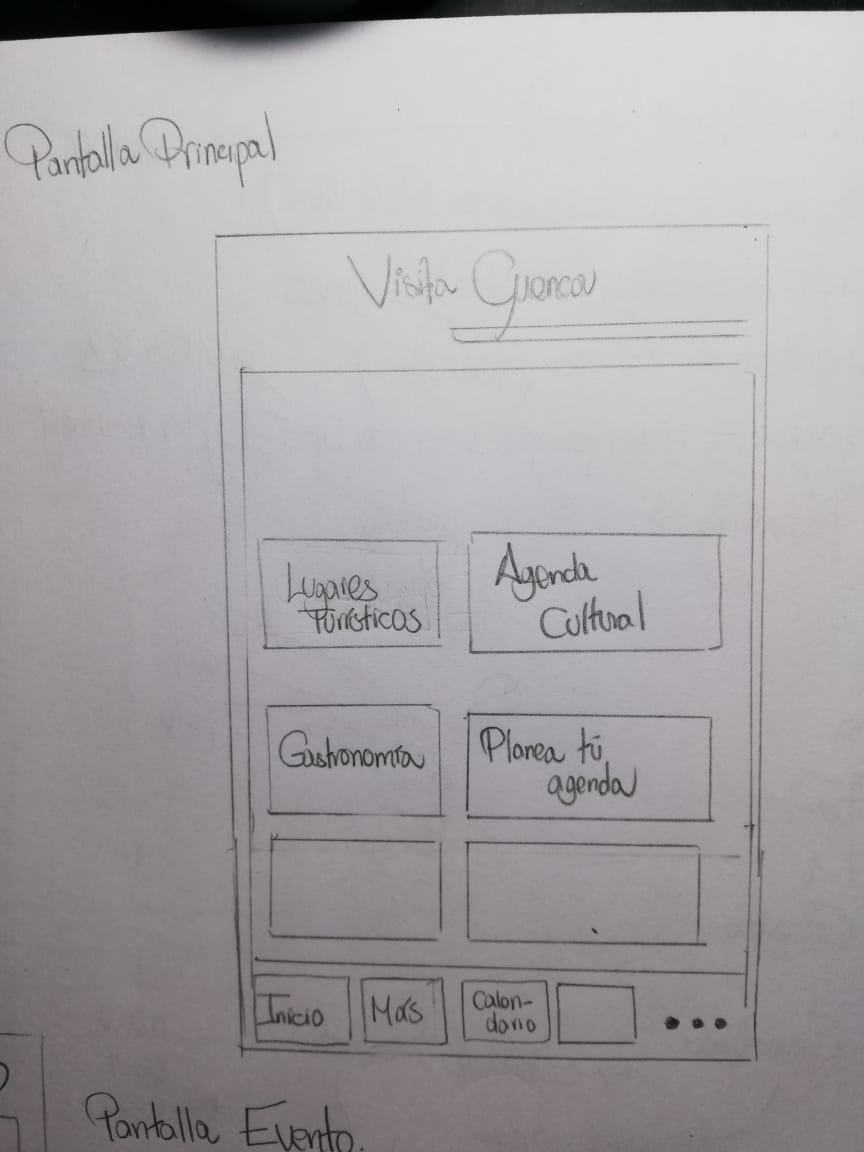 Pantalla Principal
Visita Cuenca
Lugares
Turísticos
Agenda
Cultural
Gastronomía
Planea tú
agenda
Inicio
Más
Calen-
dario
Pantalla Evento.